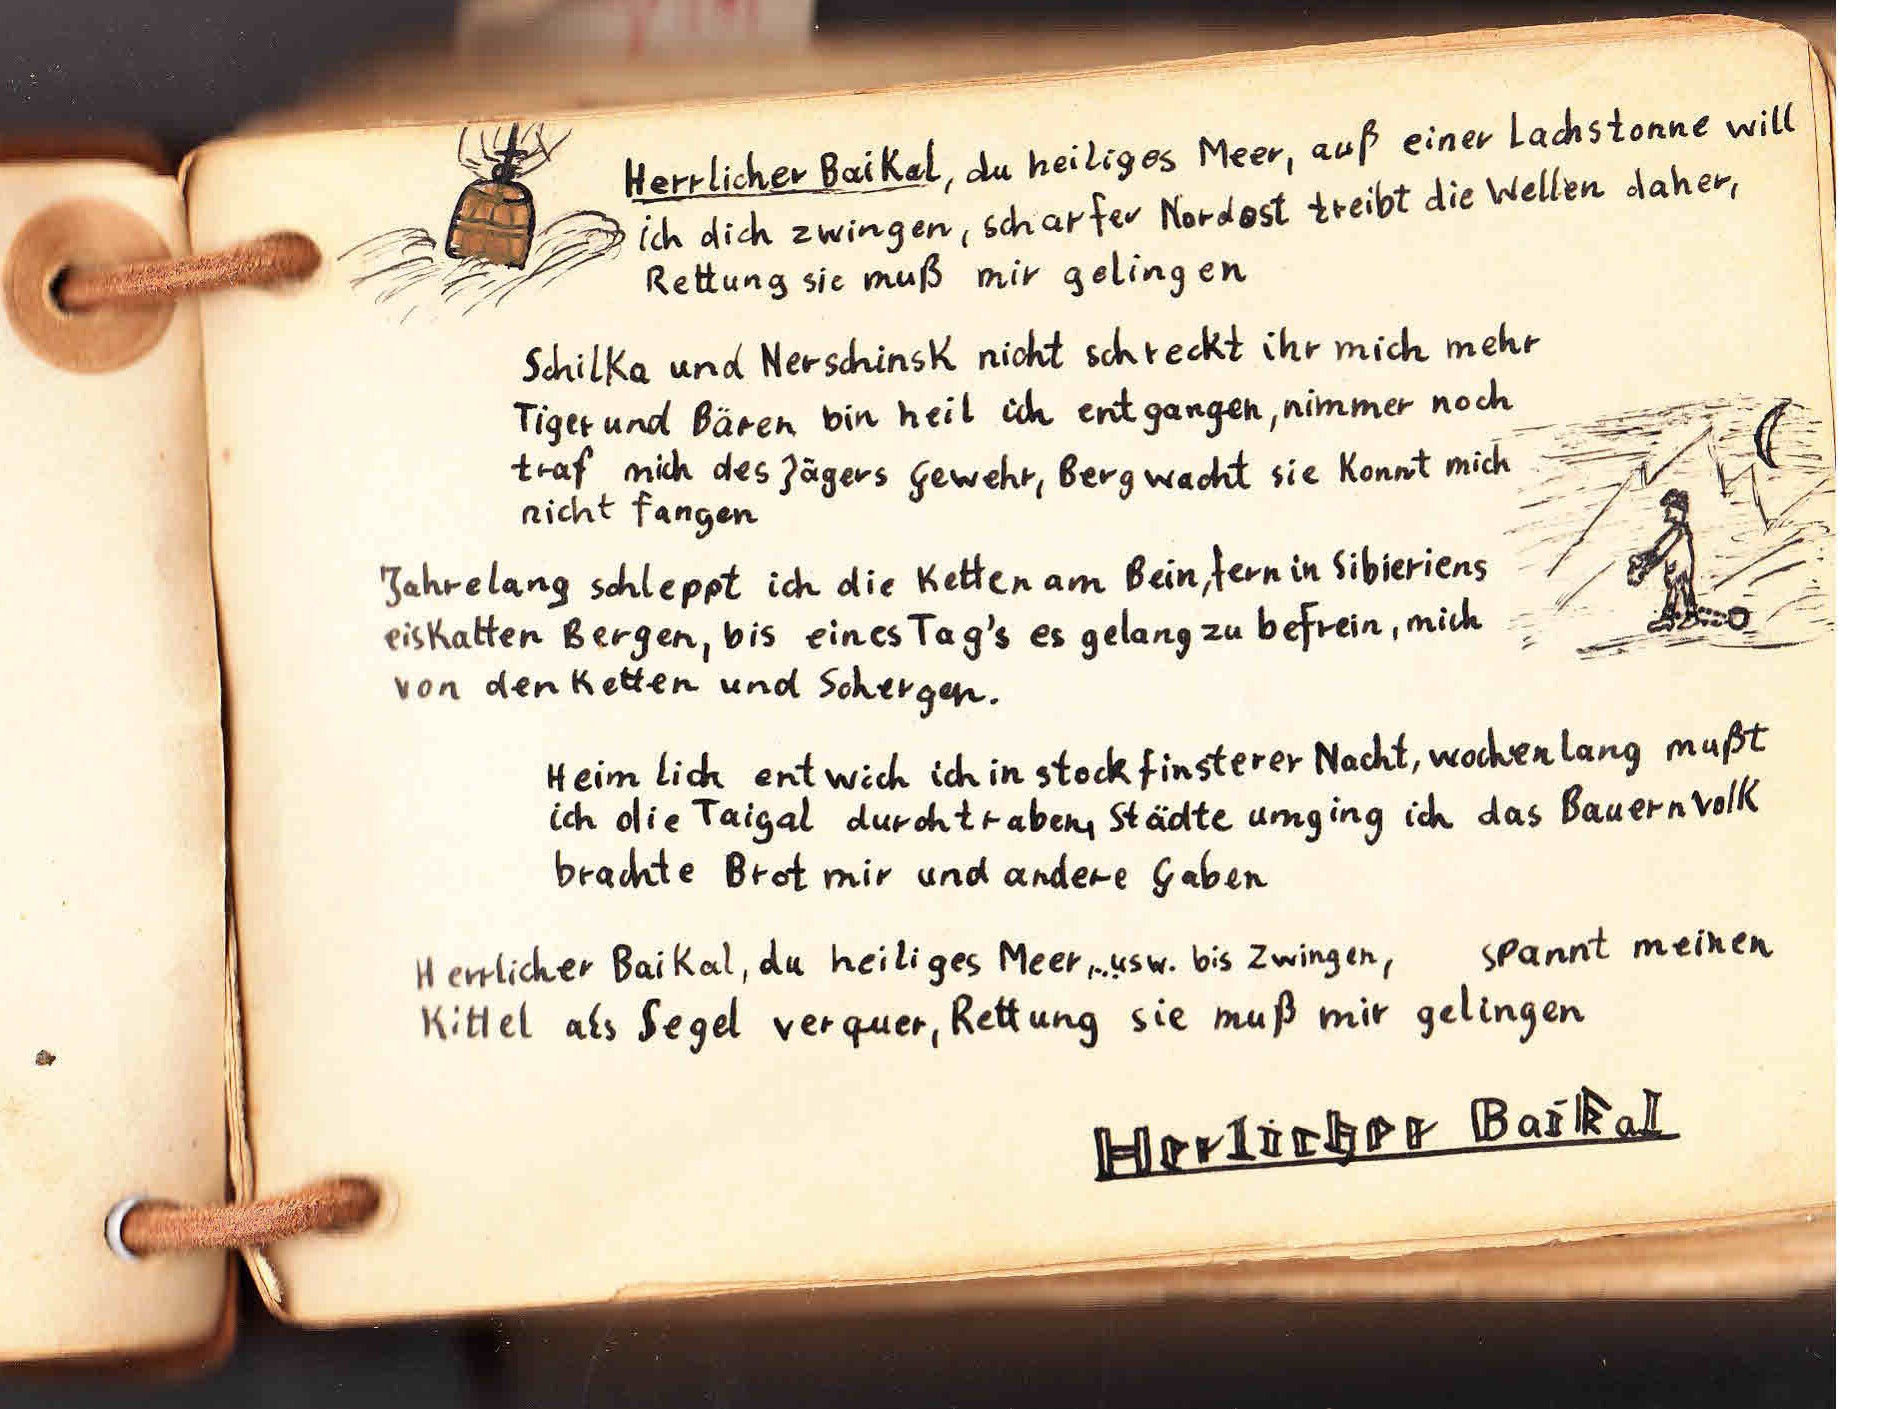 Herrlicher Baikal, du heiliges Meer, auß einer Lachstonne will
ich dich zwingen, scharfer Nordost treibt die Wellen daher,
Rettung sie muß mir gelingen
Schilka und Nerschinsk nicht schreckt ihr mich mehr
Tiger und Bären bin heil ich entgangen, nimmer noch
traf mich des Jägers Gewehr, Bergwacht sie konnt mich
nicht fangen
Jahrelang schleppt ich die Ketten am Bein, fern in Sibieriens
eiskalten Bergen, bis eines Tag's es gelang zu befrein, mich
von den Ketten und Schergen.
Heimlich entwich ich in stockfinsterer Nacht, wochenlang mußt
ich die Taigal durchtraben, Städte umging ich das Bauernvolk
brachte Brot mir und andere Gaben
Herrlicher Baikal, du heiliges Meer,..usw. bis Zwingen, spannt meinen
Kittel als Segel verquer, Rettung sie muß mir gelingen
Herlicher Baikal